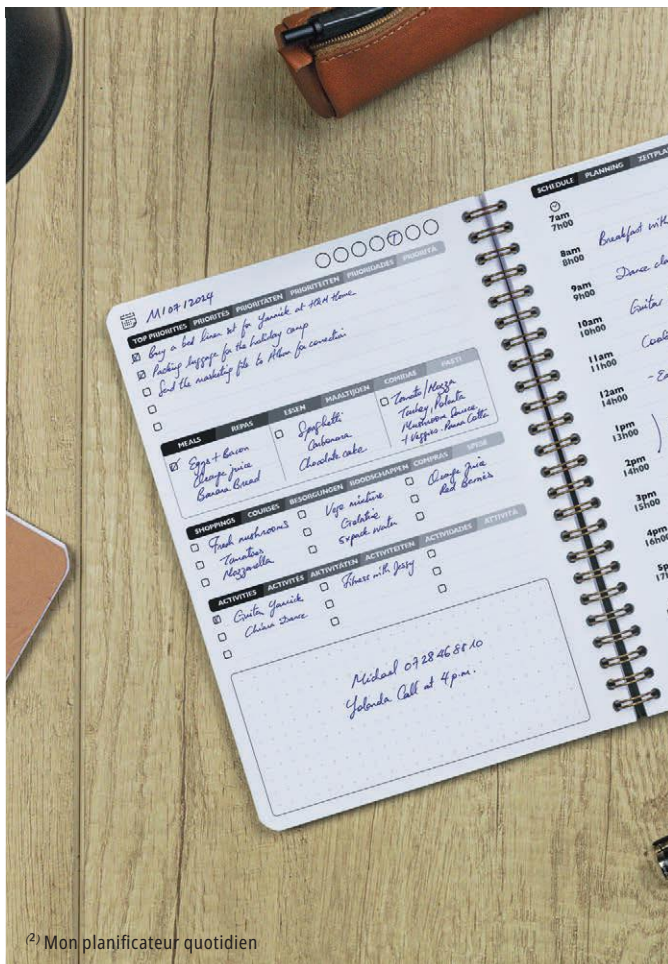 T
11/07/2024
TOP PRIORITIES PRIORITÉS PRIORITÄTEN PRIORITEITEN PRIORIDADES PRIORITÀ
Buy a bed linen set for Yannick at H&M Home
Packing luggage for the holiday camp
Send the marketing file to for correction
MEALS REPAS ESSEN MAALTIJDEN COMIDAS PASTI
Eggs + Bacon
Orange juice
Banana Bread
Spaghetti
Carbonara
Chocolate cake
Tomato / Mozza
Turkey, Polenta
Mushroom Sauce
+ Veggies. Panna Cotta
SHOPPINGS COURSES BESORGUNGEN BOODSCHAPPEN COMPRAS SPESE
Fresh mushrooms
Tomatoes
Mozzarella
mixture
Gelatine
5x pack water
Orange Juice
Red Berries
ACTIVITIES ACTIVITÉS AKTIVITÄTEN ACTIVITEITEN ACTIVIDADES ATTIVITÀ
Guitar Yannick
Chiara Dance
Fitness with Jessy
Michael 0728468810
Yolanda Call at 4 p.m.
SCHEDULE PLANNING ZEITPLA
7am
7h00
8am
8h00
Breakfast with
9am
9h00
Dance cla
10am
10h00
Guitar
11am
11h00
12am
14h00
1pm
13h00
2pm
14h00
3pm
15h00
4pm
16h00
5p
17
(2) Mon planificateur quotidien